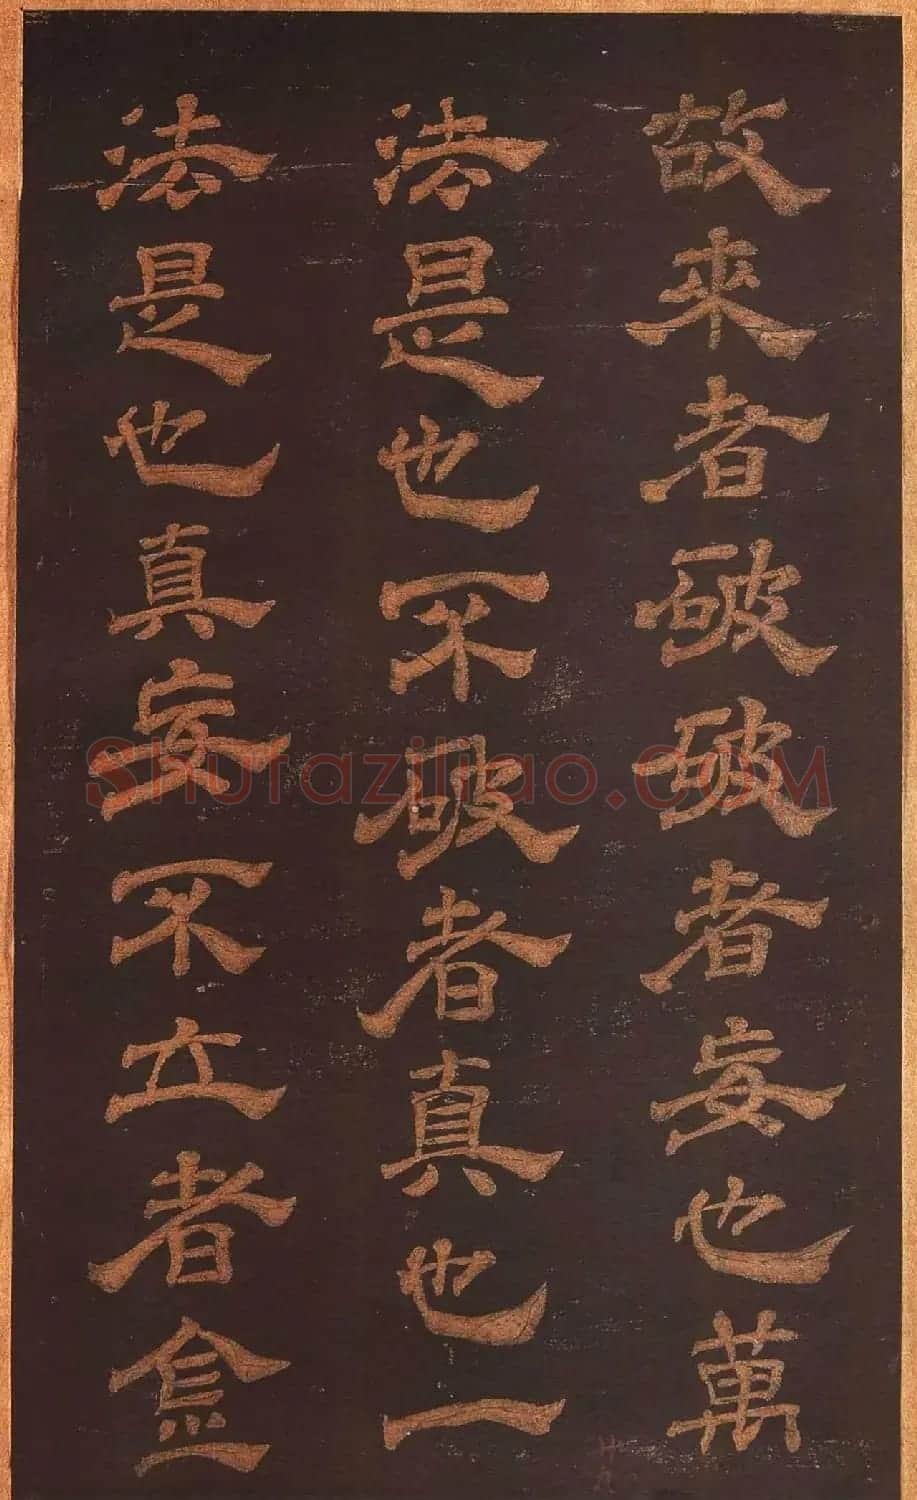 故來者破破者妄也萬
法是也不破者真也一
法是也真妄不立者
Shufaziliao.COM